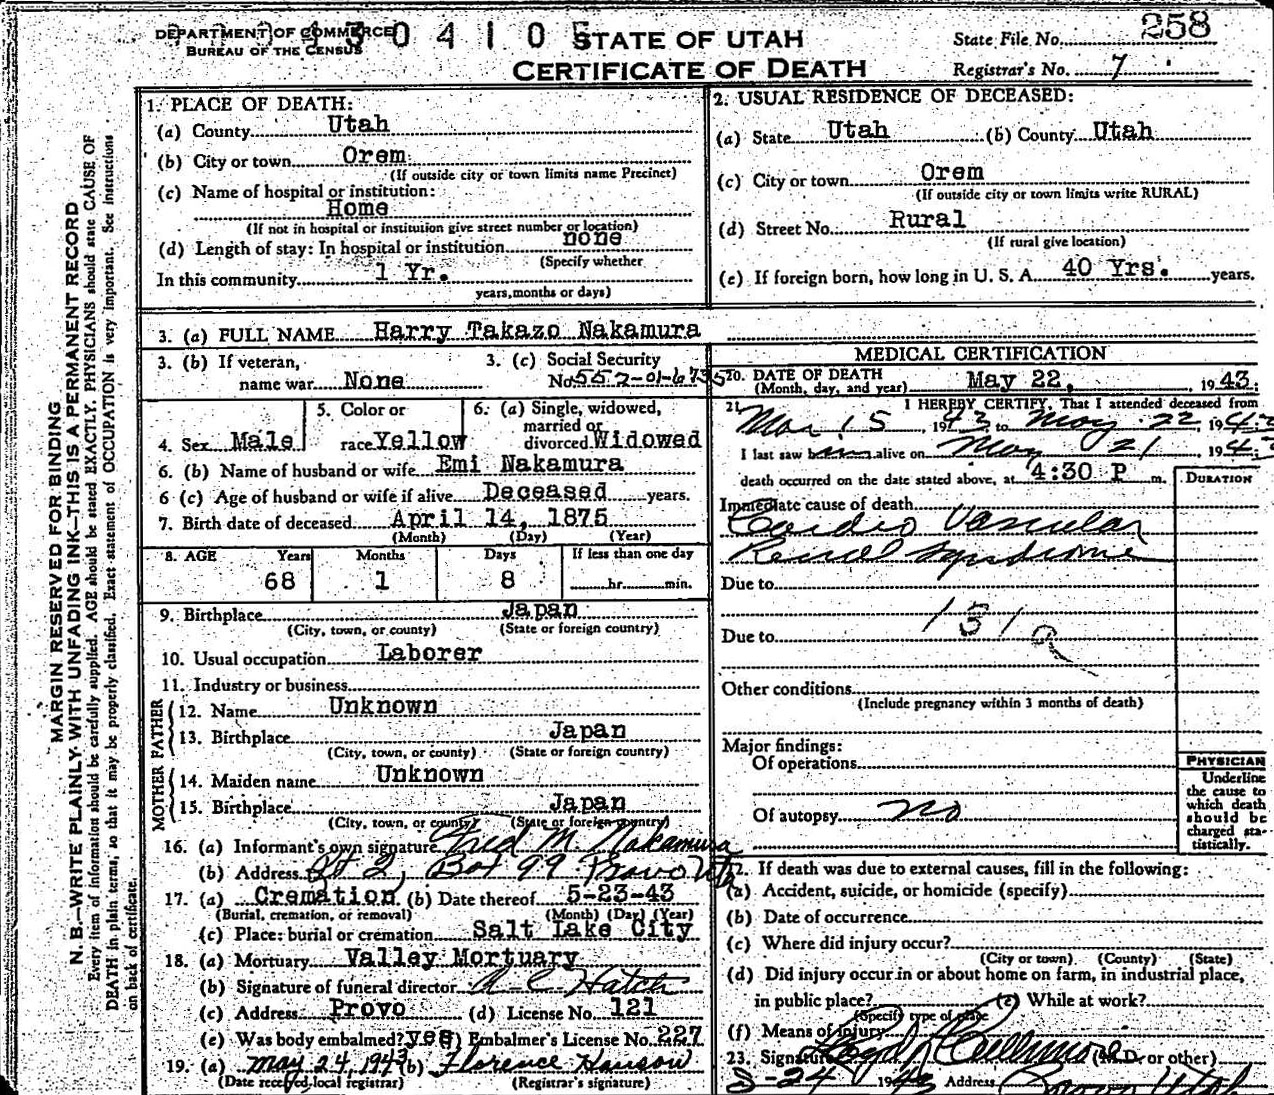 DEPARTMENT OF COMMERCE
BUREAU OF THE CENSUS
304105
STATE OF UTAH
CERTIFICATE OF DEATH
State File No. 258
Registrar's No. 7
MARGIN RESERVED FOR BINDING
N. B.—WRITE PLAINLY WITH UNFADING INK—THIS IS A PERMANENT RECORD
Every item of information should be carefully supplied. AGE should be stated EXACTLY. PHYSICIANS should state CAUSE OF
DEATH in plain terms, so that it may be properly classified. Exact statement of OCCUPATION is very important. See instructions
on back of certificate.
1. PLACE OF DEATH:
(a) County Utah
(b) City or town Orem
(If outside city or town limits name Precinct)
(c) Name of hospital or institution:
Home
(If not in hospital or institution give street number or location)
(d) Length of stay: In hospital or institution none
(Specify whether
In this community 1 Yr.
years, months or days)
2. USUAL RESIDENCE OF DECEASED:
(a) State Utah (b) County Utah
(c) City or town Orem
(If outside city or town limits write RURAL)
(d) Street No. Rural
(If rural give location)
(e) If foreign born, how long in U. S. A. 40 Yrs. years.
3. (a) FULL NAME Harry Takazo Nakamura
3. (b) If veteran,
name war None
3. (c) Social Security
No. 552-01-6735
4. Sex Male
5. Color or
race Yellow
6. (a) Single, widowed,
married or
divorced Widowed
6. (b) Name of husband or wife Emi Nakamura
6 (c) Age of husband or wife if alive Deceased years.
7. Birth date of deceased April 14, 1875
(Month) (Day) (Year)
8. AGE Years Months Days If less than one day
68 1 8 hr. min.
9. Birthplace Japan
(City, town, or county) (State or foreign country)
10. Usual occupation Laborer
11. Industry or business
FATHER
12. Name Unknown
13. Birthplace Japan
(City, town, or county) (State or foreign country)
MOTHER
14. Maiden name Unknown
15. Birthplace Japan
(City, town, or county) (State or foreign country)
16. (a) Informant's own signature Fred M. Nakamura
(b) Address Rt 2, Box 99 Provo Ut
17. (a) Cremation (b) Date thereof 5-23-43
(Burial, cremation, or removal) (Month) (Day) (Year)
(c) Place: burial or cremation Salt Lake City
18. (a) Mortuary Valley Mortuary
(b) Signature of funeral director A. C. Hatch
(c) Address Provo (d) License No. 121
(e) Was body embalmed? yes ) Embalmer's License No. 227
19. (a) May 24, 1943 (b) Florence Hanson
(Date received local registrar) (Registrar's signature)
MEDICAL CERTIFICATION
20. DATE OF DEATH
(Month, day, and year) May 22, 1943.
21. I HEREBY CERTIFY, That I attended deceased from
Mar. 15, 1943, to May 22 1943
I last saw him alive on May 21, 1943;
death occurred on the date stated above, at 4:30 P m.
DURATION
Immediate cause of death
Cardio Vascular
Renal Syndrome
Due to
131a
Due to
Other conditions
(Include pregnancy within 3 months of death)
Major findings:
Of operations
Of autopsy no
PHYSICIAN
Underline
the cause to
which death
should be
charged sta-
tistically.
22. If death was due to external causes, fill in the following:
(a) Accident, suicide, or homicide (specify)
(b) Date of occurrence
(c) Where did injury occur?
(City or town) (County) (State)
(d) Did injury occur in or about home on farm, in industrial place,
in public place? (e) While at work?
(Specify type of place)
(f) Means of injury
23. Signature Cullimore (M.D. or other)
5-24 1943 Address Provo Utah